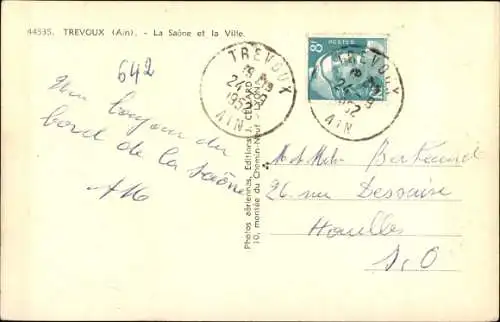 44535. TREVOUX (Ain). - La Saône et la Ville.
642
Un bonjour du
bord de la Saône
TREVOUX
24
1952
AIN
Photos aériennes, Editions J. CELLARD
10, montée du Chemin-Neuf - LYON
8F
POSTES
TREVOUX
24
1952
AIN
M. et Mme Bertrand
26 rue Dessaise
Houilles
S.O